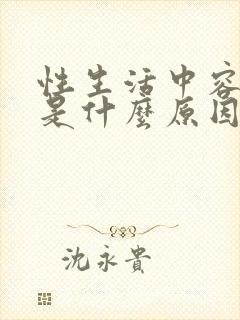 性生活中容
是什麼原因
沈永貴